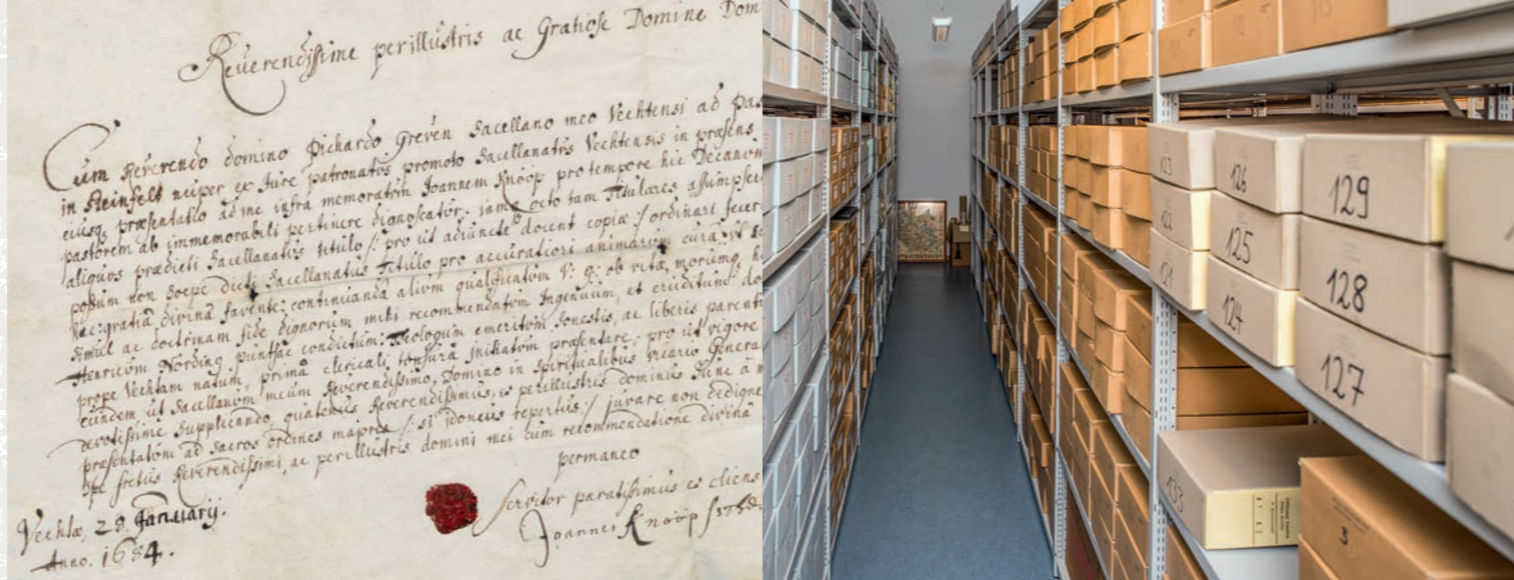 Reverendissime perillustris ac Gratiose Domine Dom
Cum Reverendo domino Pichardo Greven Sacellano meo Vechtensi ad Pas
in Steinfelt nuper ex Jure patronatus promoto Sacellanatus Vechtensis in præsens
eiusq præsentatio ad me infra memoratum Joannem Knoop pro tempore hic Decanum
pastorem ab immemorabili pertinere dignoscatur, iamq octo tam Titulares assumpser
aliquos prædicti Sacellanatus titulo /: pro ut adjunctæ docent copiæ :/ ordinari fecer
possum non sæpe dicti Sacellanatus Titulo pro accuratiori animarum cura ut
hac gratia divina favente continuanda alium qualificatum ob vitæ, morumq
simul ac doctrinam fide dignorum mihi recommendatum Ingenuum, et eruditum do
Henricum Nording condictum Theologum emeritum honestis, ac liberis parent
prope Vechtam natum, prima clericali tonsura initiatum præsentare, pro ut vigore
eundem ut Sacellanum meum Reverendissimo, Domino in Spiritualibus vicario Genera
devotissime Supplicando quatenus Reverendissimus, et perillustris dominus
præsentatum ad Sacros ordines majores /: si idoneus repertus :/ juvare non dedigne
Spe fretus Reverendissimi, ac perillustris domini mei cum recommendatione divina
permaneo
Servitor paratissimus et cliens
Joannes Knoop
Vechtæ, 29 January.
Anno. 1684.
123
126
129
122
125
128
121
124
127
133
3